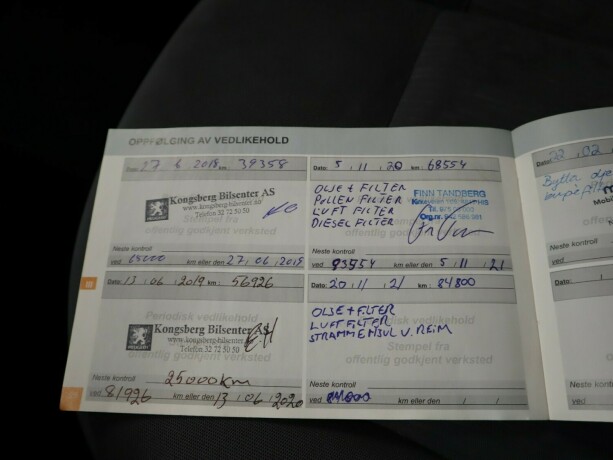 OPPFØLGING AV VEDLIKEHOLD
Dato: 27 6 2018 km: 39358
Kongsberg Bilsenter AS
www.kongsberg-bilsenter.no
Telefon 32 72 50 50
offentlig godkjent verksted
Neste kontroll
ved 65000 km eller den 27.06.2019
Dato: 13 .06 .2019 km: 56926
Periodisk vedlikehold
Kongsberg Bilsenter AS
www.kongsberg-bilsenter.no
Telefon 32 72 50 50
offentlig godkjent verksted
Neste kontroll 25000km
ved 81926 km eller den 13 .06 .2020
Dato: 5 . 11 . 20 km: 68554
OLJE + FILTER
POLLEN FILTER
LUFT FILTER
DIESEL FILTER
FINN TANDBERG
Org.nr.
offentlig godkjent verksted
Neste kontroll
ved 93554 km eller den 5 . 11 . 21
Dato: 20 . 11 . 21 km: 84800
Periodisk vedlikehold
OLJE + FILTER
LUFT FILTER
STRAMMEHJUL V. REIM
Stempel fra
offentlig godkjent verksted
Neste kontroll
ved km eller den / /
Dato: 22 . 02
Bytter olje
Dato: